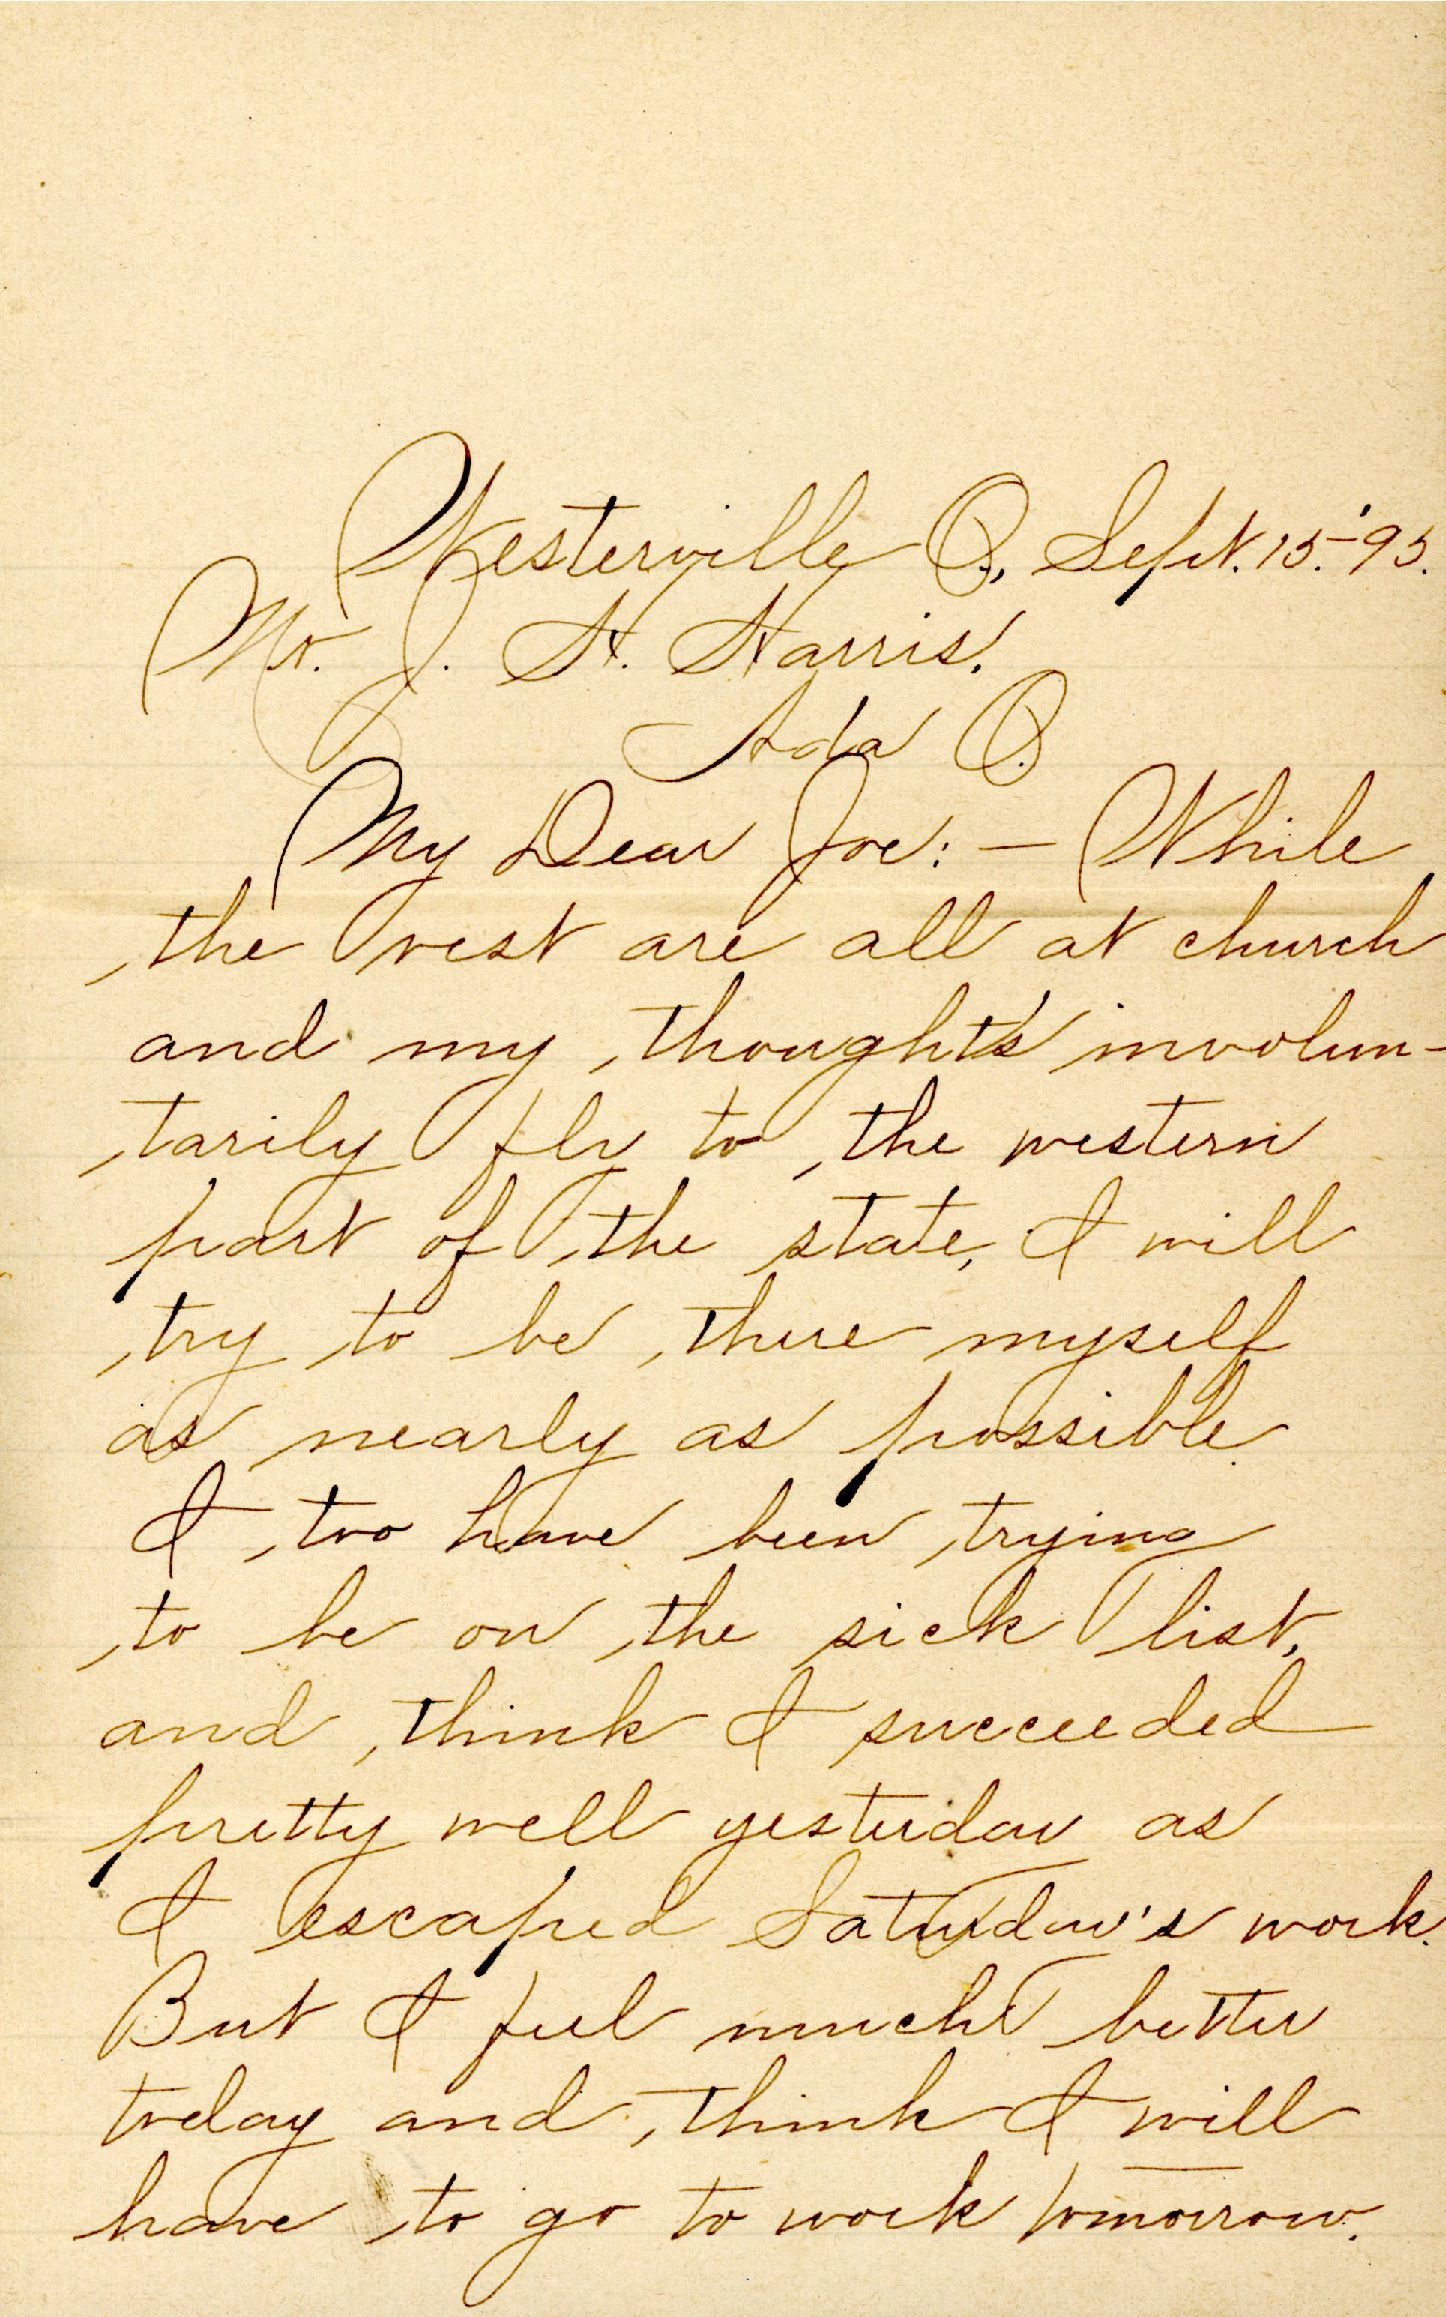 Westerville O., Sept. 15. '95.
Mr. J. H. Harris.
Ada O.
My Dear Joe: — While
the rest are all at church
and my thoughts involun-
tarily fly to the western
part of the state, I will
try to be there myself
as nearly as possible.
I too have been trying
to be on the sick list,
and think I succeeded
pretty well yesterday as
I escaped Saturday's work.
But I feel much better
today and think I will
have to go to work tomorrow.